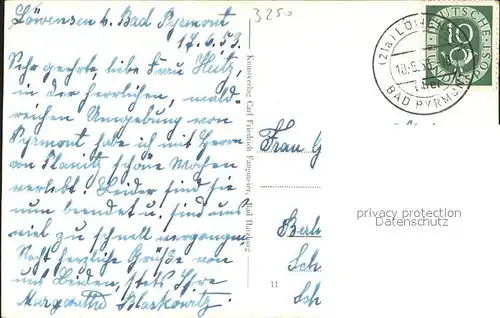 Löwensen b. Bad Pyrmont
17.6.53.
Sehr geehrte, liebe Frau Heitz,
in der herrlichen, wald-
reichen Umgebung von
Pyrmont habe ich mit Herrn
von Planitz schöne Wochen
verlebt. Leider sind sie
nun beendet u. sind uns
viel zu schnell vergangen.
Recht herzliche Grüße von
uns Beiden, stets Ihre
Margarethe Blaskowitz.
3250
Kunstverlag Carl Friedrich Fangmeier, Bad Harzburg
11
Frau G
Berli
Sch
Sch
(21a) LÖWENSEN
BAD PYRMONT
DEUTSCHE POST
10
privacy protection
Datenschutz